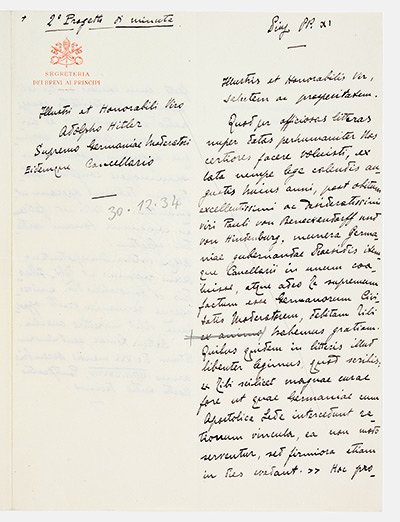 2° Progetto di minuta
SEGRETERIA
DEI BREVI AI PRINCIPI
Illustri et Honorabili Viro
Adolpho Hitler
Supremo Germaniae Moderatori
Eidemque Cancellario
30.12.34
Pius PP. XI
Illustris et Honorabilis Vir,
salutem ac prosperitatem.
Quod per officiosas litteras
nuper datas perhumaniter Nos
certiores facere voluisti, ex
lata nempe lege calendis au-
gustis huius anni, post obitum
excellentissimi ac desideratissimi
viri Pauli von Beneckendorff und
von Hindenburg, munera Germa-
niae gubernandae Praesidis idem-
que Cancellarii in unum coa-
luisse, atque adeo te supremum
factum esse Germanorum Civi-
tatis Moderatorem, debitam tibi
ex animo habemus gratiam.
Quibus quidem in litteris illud
libenter legimus, quod scribis:
tibi scilicet magnae curae
fore ut quae Germaniae cum
Apostolica Sede intercedunt ra-
tionum vincula, ea non modo
serventur, sed firmiora etiam
in dies evadant. >> Hoc pro-